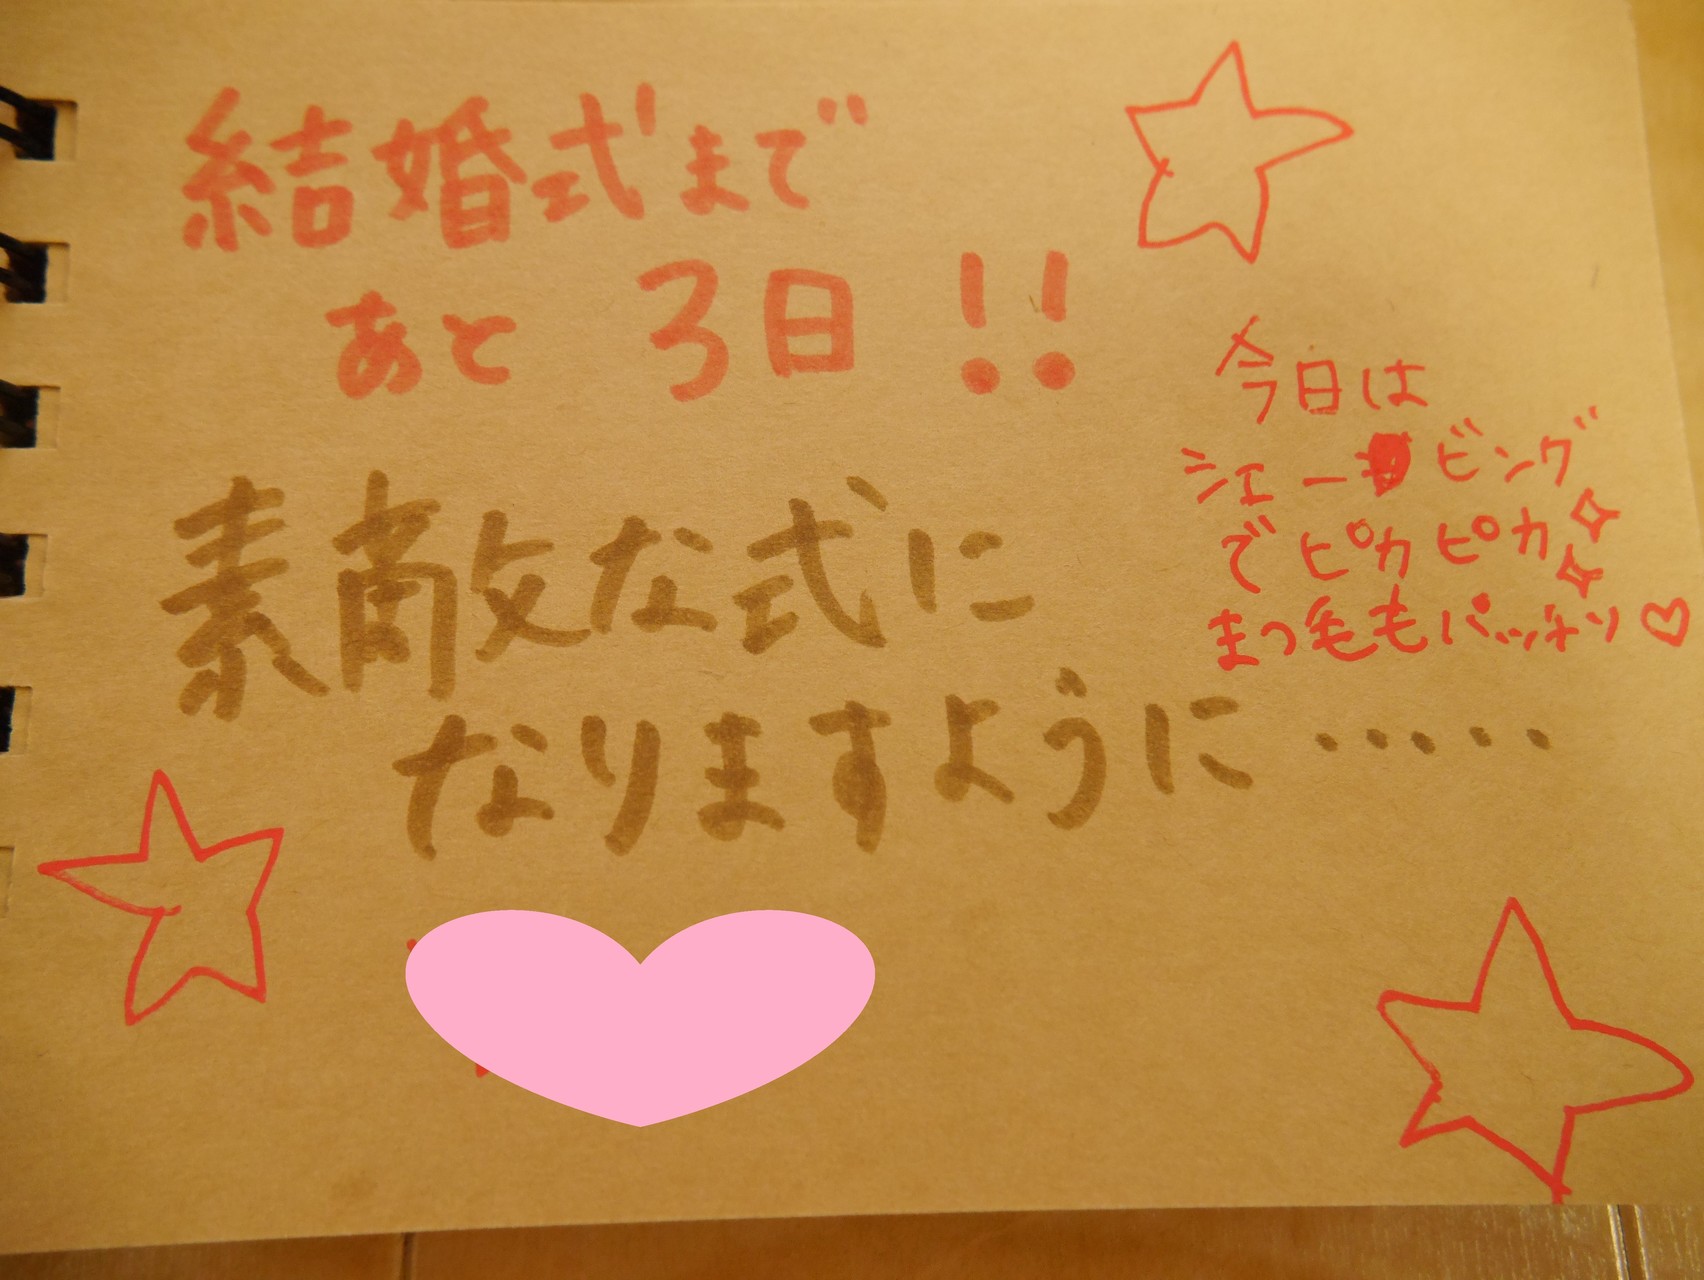 結婚式まで
あと 3日!!
今日は
シェービング
でピカピカ
まつ毛もバッチリ♡
素敵な式に
なりますように・・・・・